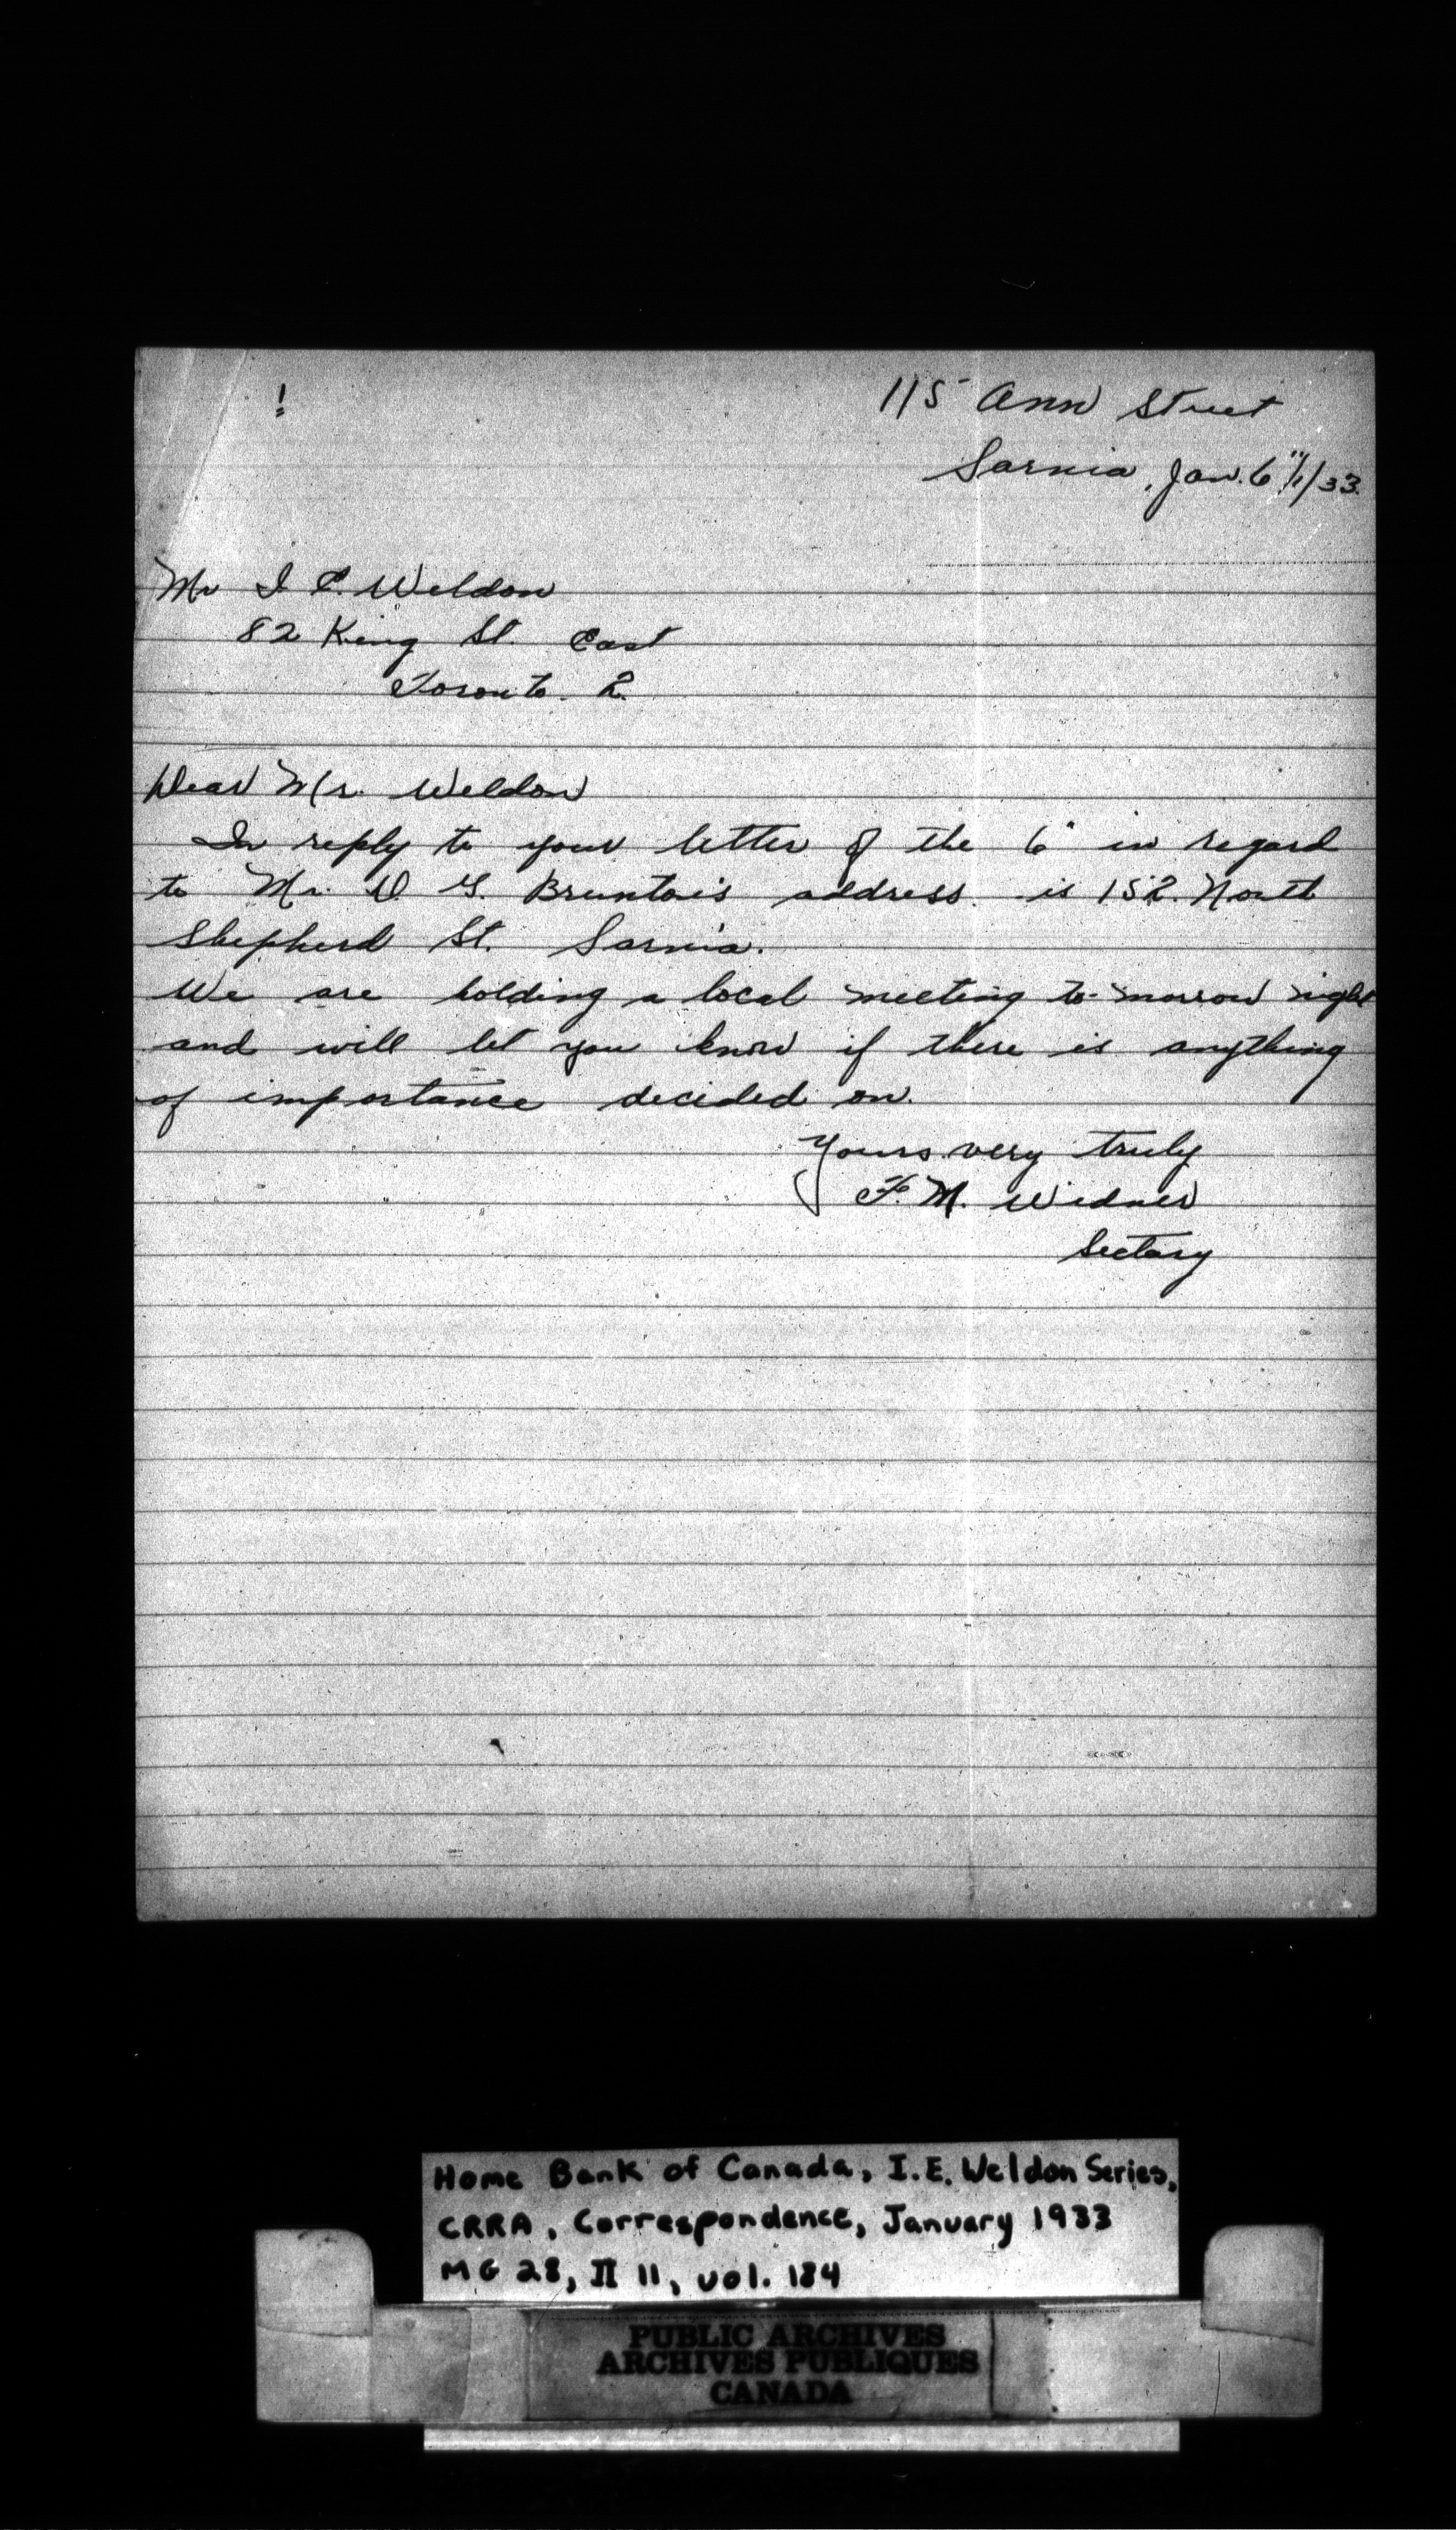 115 Ann Street
Sarnia, Jan. 6"/1/33.
Mr I E. Weldon
82 King St. East
Toronto. 2.
Dear Mr. Weldon
In reply to your letter of the 6" in regard
to Mr. D. G. Brunton's address. is 152. North
Shepherd St. Sarnia.
We are holding a local meeting to-morrow night
and will let you know if there is anything
of importance decided on.
Yours very truly
F. M. Widner
Sectary
Home Bank of Canada, I.E. Weldon Series,
CRRA, Correspondence, January 1933
MG 28, II 11, vol. 184
PUBLIC ARCHIVES
ARCHIVES PUBLIQUES
CANADA